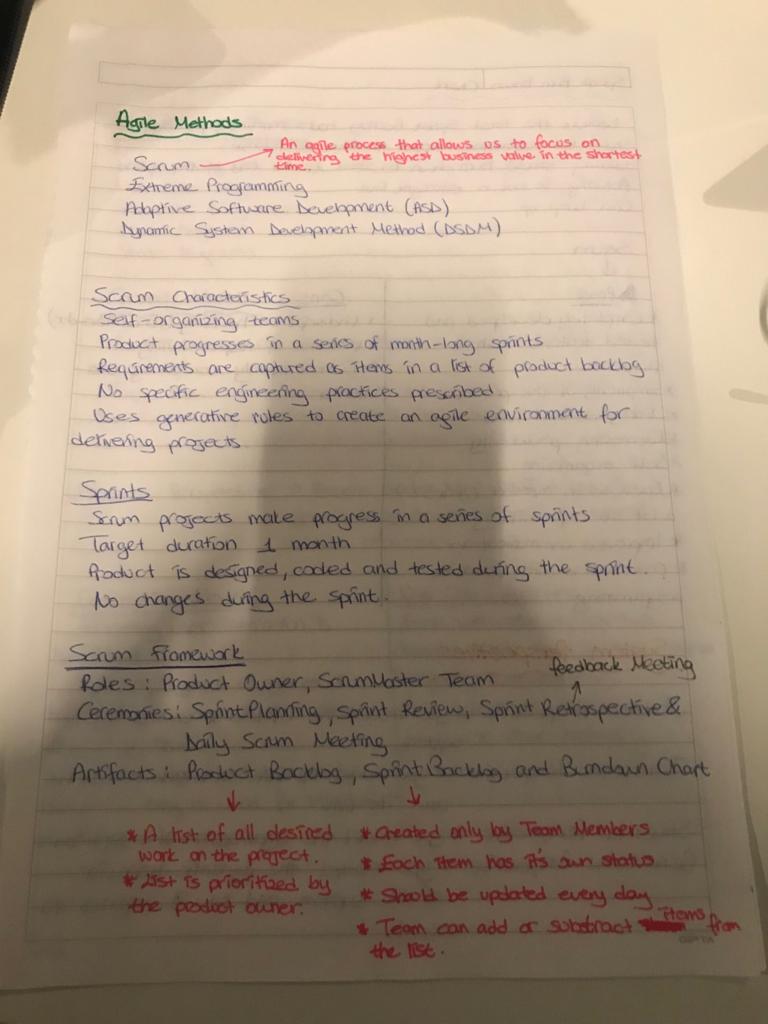 Agile Methods
An agile process that allows us to focus on
delivering the highest business value in the shortest
time.
Scrum
Extreme Programming
Adaptive Software Development (ASD)
Dynamic System Development Method (DSDM)
Scrum Characteristics
Self-organizing teams
Product progresses in a series of month-long sprints
Requirements are captured as items in a list of product backlog
No specific engineering practices prescribed
Uses generative rules to create an agile environment for
delivering projects
Sprints
Scrum projects make progress in a series of sprints
Target duration 1 month
Product is designed, coded and tested during the sprint.
No changes during the sprint.
Scrum Framework
feedback Meeting
Roles: Product Owner, ScrumMaster Team
Ceremonies: Sprint Planning, Sprint Review, Sprint Retrospective &
Daily Scrum Meeting
Artifacts: Product Backlog, Sprint Backlog and Burndown Chart
* A list of all desired
work on the project.
* List is prioritized by
the product owner.
* Created only by Team Members
* Each item has it's own status
* Should be updated every day
* Team can add or substract items from
the list.